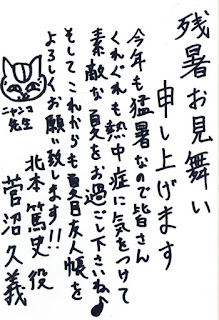 残暑お見舞い
申し上げます
今年も猛暑なので皆さん
くれぐれも熱中症に気をつけて
素敵な夏をお過ごし下さいね♪
そしてこれからも夏目友人帳を
よろしくお願い致します!!
北本篤史役
菅沼久義
ニャンコ
先生